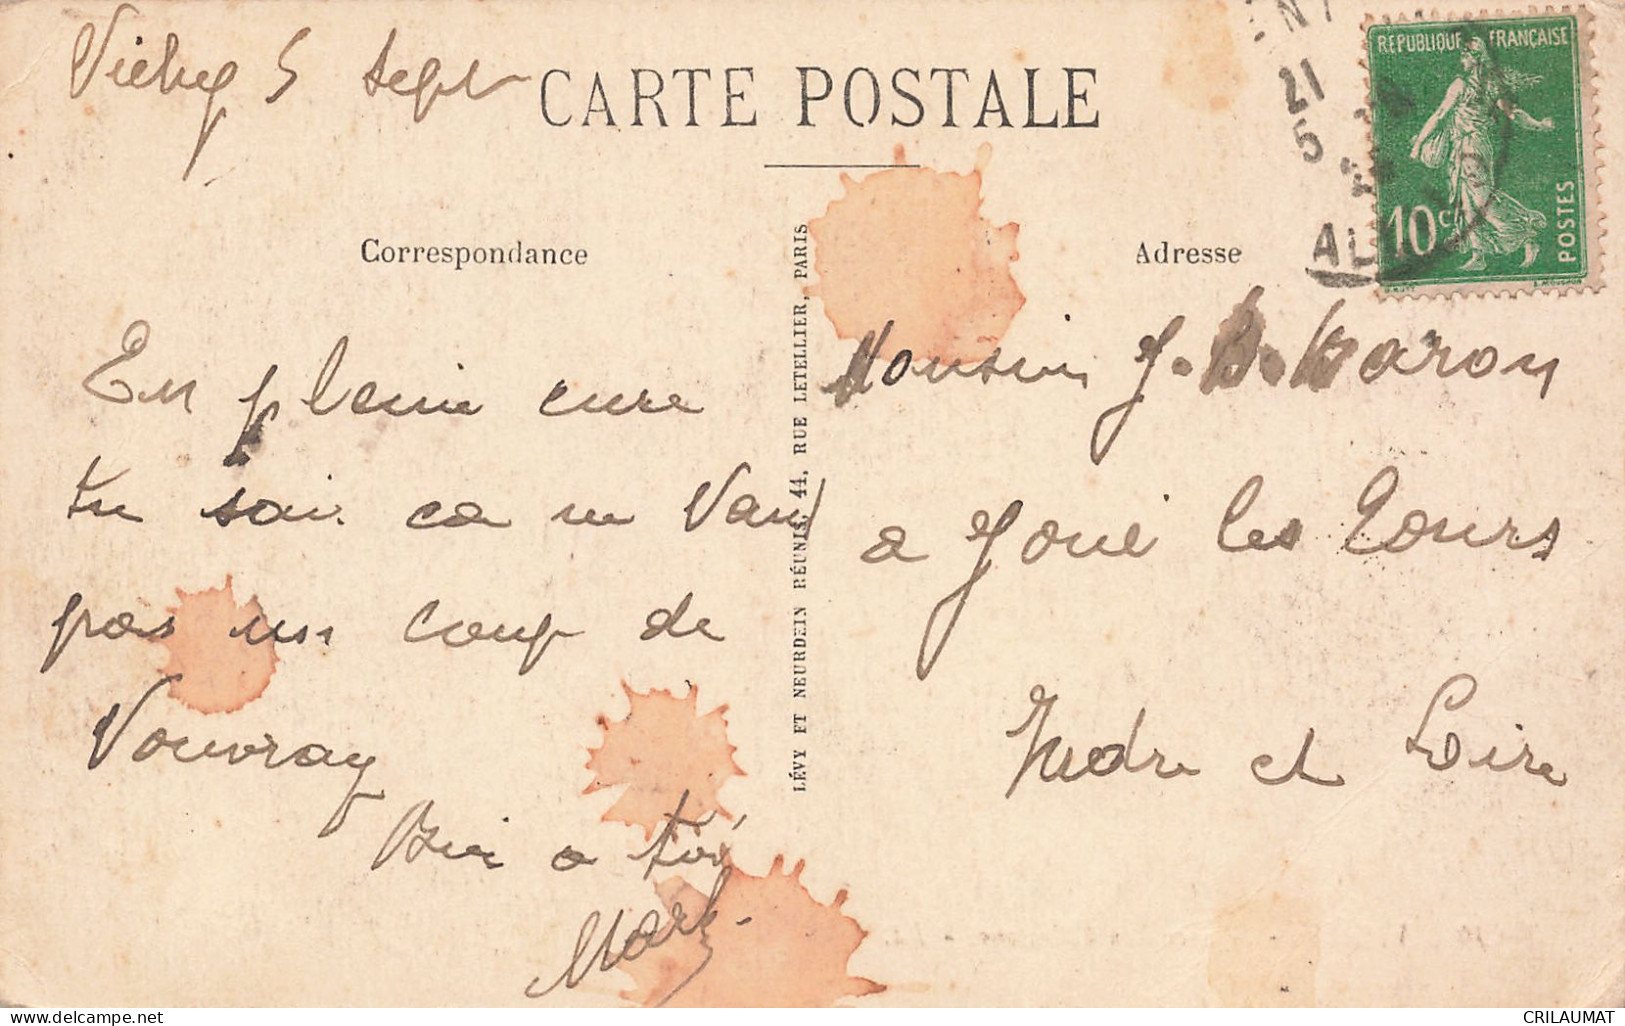 Vichy 5 Sept
CARTE POSTALE
Correspondance
Adresse
RÉPUBLIQUE FRANÇAISE
10c
POSTES
21
5
AL
LÉVY ET NEURDEIN RÉUNIS, 44, RUE LETELLIER, PARIS
En pleine cure
tu sais ca ne Vaut
pas un coup de
Vouvray
Bien a toi
Monsieur J. B. Baron
a Joué les Tours
Indre et Loire
delcampe.net
CRILAUMAT